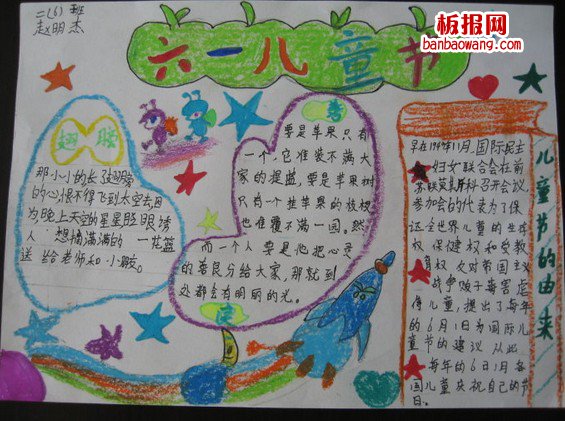 二(6)班
赵明杰
板报网
banbaowang.com
六一儿童节
翅膀
那小小的长了翅膀
的心,恨不得飞到太空去,因
为晚上天空的星星眨眼诱
人,想摘满满的一花篮
送给老师和小
要是苹果只有
一个,它准装不满大
家的提篮,要是苹果树
只有一个挂苹果的枝桠
也准覆不满一园。然
而一个人要是他把心灵
的善良分给大家,那就到
处都会有明丽的光。
早在1949年11月,国际民主
妇女联合会在前
苏联莫斯科召开会议,
参加会的代表为了保
证全世界儿童的生存
权 保健权 和受教
育权 反对帝国主义
战争贩子毒害虐
待儿童,提出了每年
的6月1日为国际儿
童节的建议 从此
每年的6月1日 每
国儿童庆祝自己的节
日。
儿童节的由来